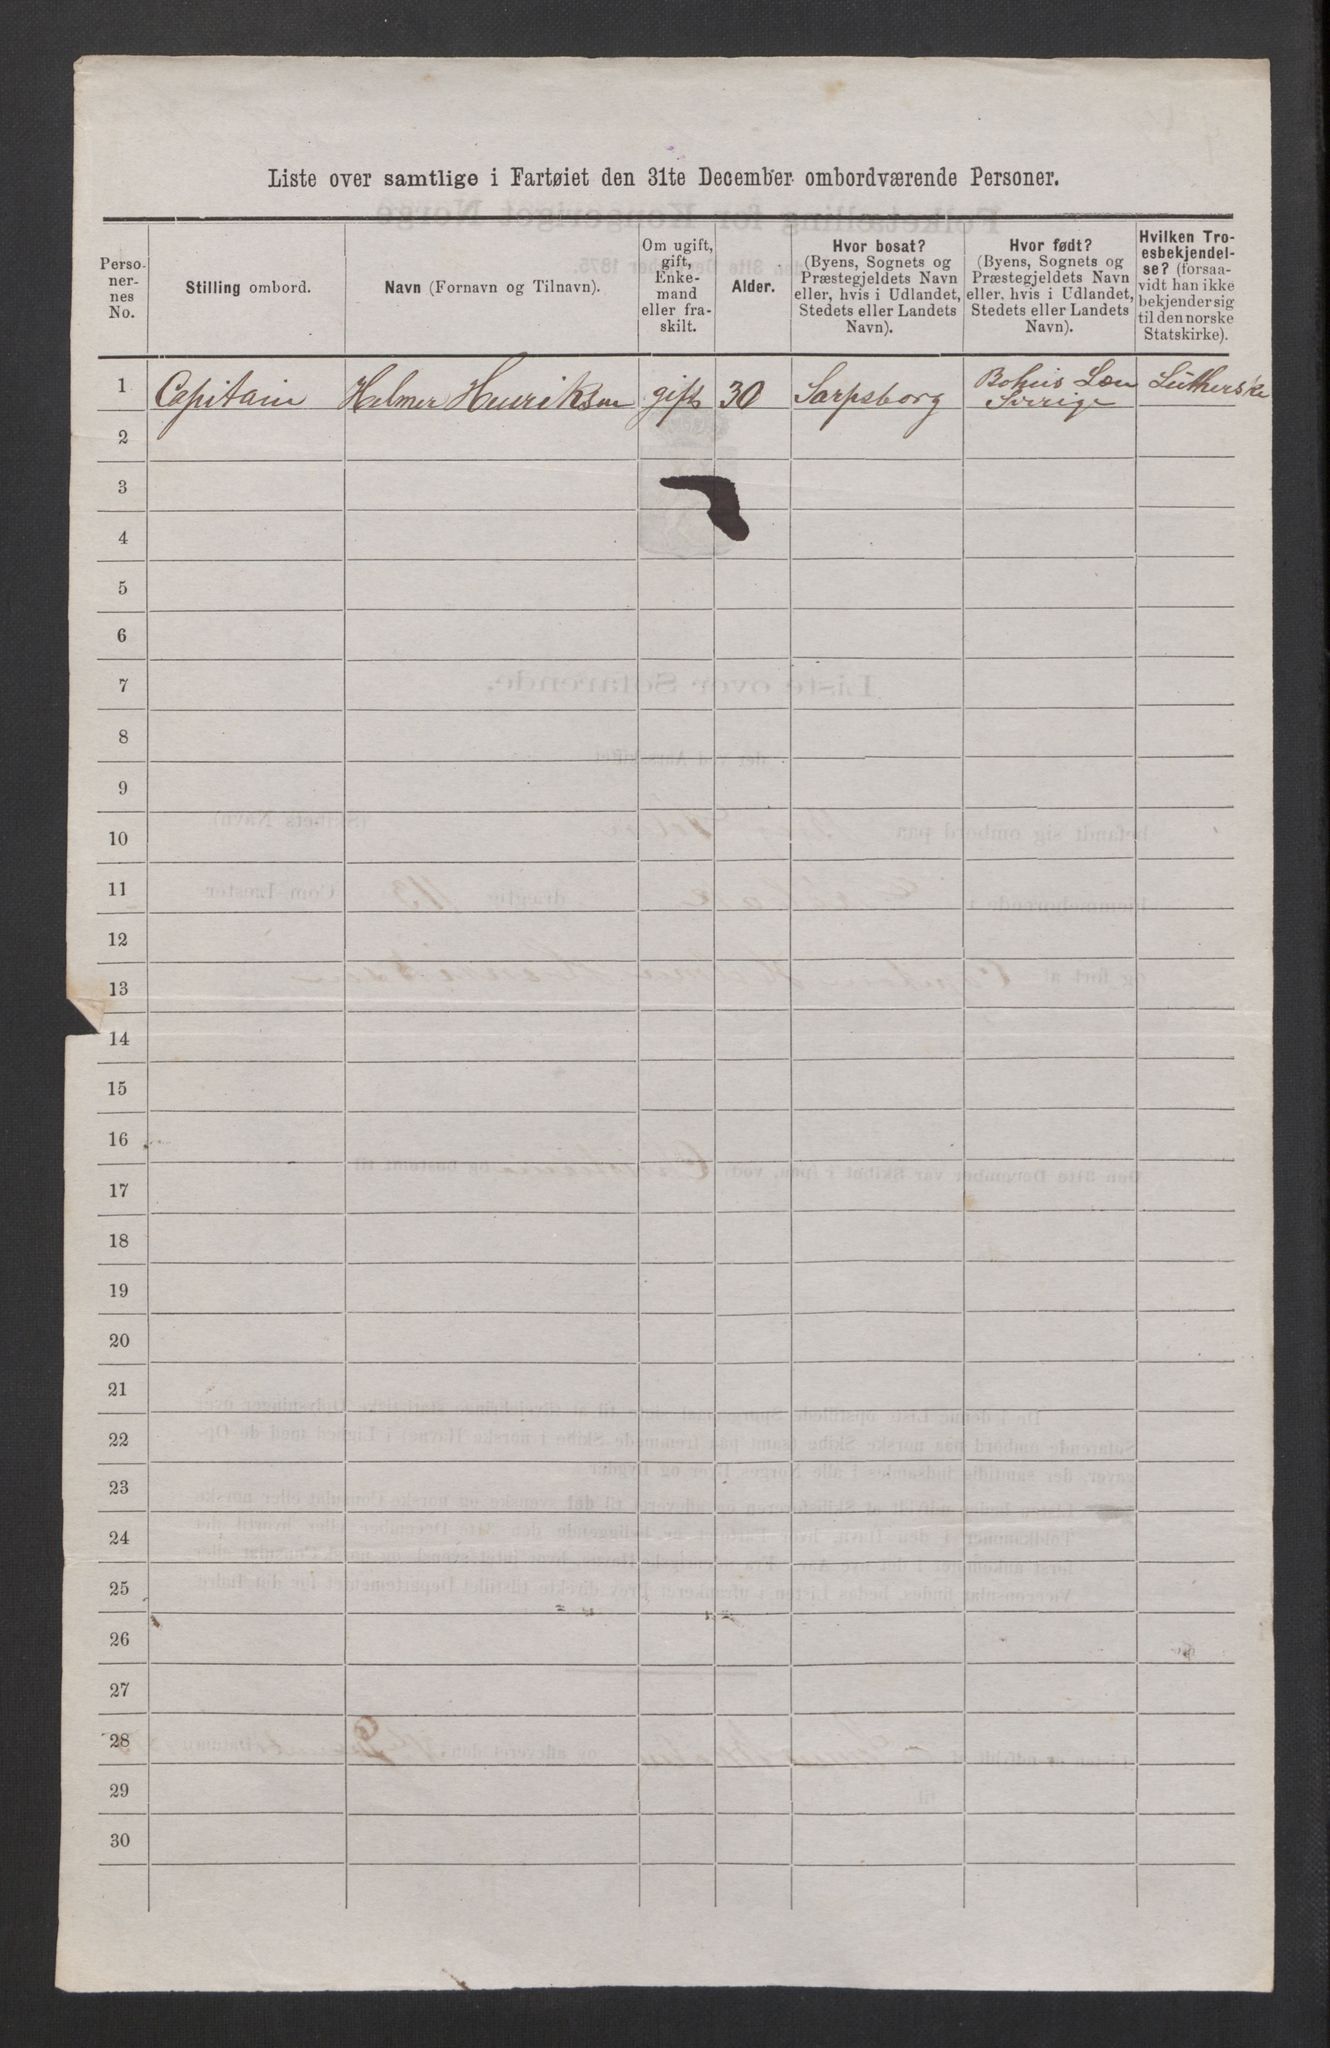 Liste over samtlige i Fartøiet den 31te December ombordværende Personer.
Perso-
ner-
nes
No.
Stilling ombord.
Navn (Fornavn og Tilnavn).
Om ugift,
gift,
Enke-
mand
eller fra-
skilt.
Alder.
Hvor bosat?
(Byens, Sognets og
Præstegjeldets Navn
eller, hvis i Udlandet,
Stedets eller Landets
Navn).
Hvor født?
(Byens, Sognets og
Præstegjeldets Navn
eller, hvis i Udlandet,
Stedets eller Landets
Navn).
Hvilken Tro-
esbekjendel-
se? (forsaa-
vidt han ikke
bekjender sig
til den norske
Statskirke).
1 Capitain Helmer Henriksen gift 30 Sarpsborg Bohus Len Sverige Lutherske
2
3
4
5
6
7
8
9
10
11
12
13
14
15
16
17
18
19
20
21
22
23
24
25
26
27
28
29
30